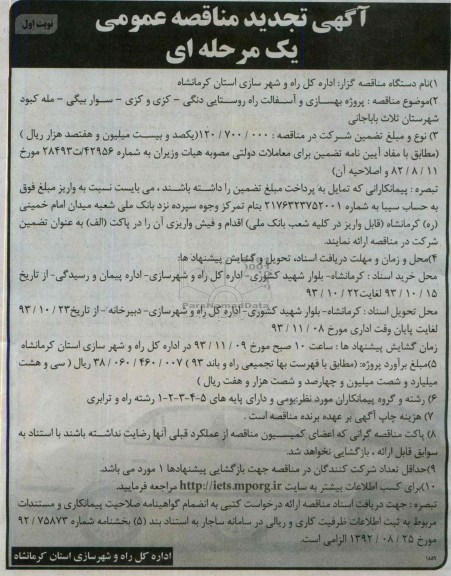 آگهی تجدید مناقصه عمومی
یک مرحله ای
نوبت اول
۱)نام دستگاه مناقصه گزار: اداره کل راه و شهر سازی استان کرمانشاه
۲)موضوع مناقصه : پروژه بهسازی و آسفالت راه روستایی دنگی - کزی و کزی - سوار بیگی - مله کبود
شهرستان ثلاث باباجانی
۳) نوع و مبلغ تضمین شرکت در مناقصه : ۱۲۰/۷۰۰/۰۰۰(یکصد و بیست میلیون و هفتصد هزار ریال )
(مطابق با مفاد آیین نامه تضمین برای معاملات دولتی مصوبه هیات وزیران به شماره ۴۲۹۵۶/ت۲۸۴۹۳ مورخ
۸۲/۸/۱۱ و اصلاحیه آن)
تبصره : پیمانکارانی که تمایل به پرداخت مبلغ تضمین را داشته باشند ، می بایست نسبت به واریز مبلغ فوق
به حساب سیبا به شماره ۲۱۷۶۳۲۳۷۵۲۰۰۱ بنام تمرکز وجوه سپرده نزد بانک ملی شعبه میدان امام خمینی
(ره) کرمانشاه (قابل واریز در کلیه شعب بانک ملی) اقدام و فیش واریزی آن را در پاکت (الف) به عنوان تضمین
شرکت در مناقصه ارائه نمایند.
۴)محل و زمان و مهلت دریافت اسناد، تحویل و گشایش پیشنهاد ها:
محل خرید اسناد : کرمانشاه- بلوار شهید کشوری- اداره کل راه و شهرسازی- اداره پیمان و رسیدگی- از تاریخ
۹۳/۱۰/۱۵ لغایت ۹۳/۱۰/۲۲
محل تحویل اسناد : کرمانشاه- بلوار شهید کشوری- اداره کل راه و شهرسازی- دبیرخانه - از تاریخ ۹۳/۱۰/۲۳
لغایت پایان وقت اداری مورخ ۹۳/۱۱/۰۸
زمان گشایش پیشنهاد ها : ساعت ۱۰ صبح مورخ ۹۳/۱۱/۰۹ در اداره کل راه و شهر سازی استان کرمانشاه
۵)مبلغ برآورد پروژه: (مطابق با فهرست بها تجمیعی راه و باند ۹۳ ) ۳۸/۰۶۰/۴۶۰/۰۰۷ ریال ( سی و هشت
میلیارد و شصت میلیون و چهارصد و شصت هزار و هفت ریال )
۶) رشته و گروه پیمانکاران مورد نظر:بومی و دارای پایه های ۵-۴-۳-۲-۱ رشته راه و ترابری
۷) هزینه چاپ آگهی بر عهده برنده مناقصه است .
۸) پاکت مناقصه گرانی که اعضای کمیسیون مناقصه از عملکرد قبلی آنها رضایت نداشته باشند با استناد به
سوابق قابل ارائه ، بازگشایی نخواهد شد.
۹)حداقل تعداد شرکت کنندگان در مناقصه جهت بازگشایی پیشنهادها ۱ مورد می باشد.
۱۰)برای کسب اطلاعات بیشتر به سایت http://iets.mporg.ir مراجعه فرمایید.
تبصره : جهت دریافت اسناد مناقصه ارائه درخواست کتبی به انضمام گواهینامه صلاحیت پیمانکاری و مستندات
مربوط به ثبت اطلاعات ظرفیت کاری و ریالی در سامانه ساجار به استناد بند (۵) بخشنامه شماره ۹۲/۷۵۸۷۳
مورخ ۱۳۹۲/۰۸/۲۵ الزامی است.
اداره کل راه و شهرسازی استان کرمانشاه
ParsNamadData